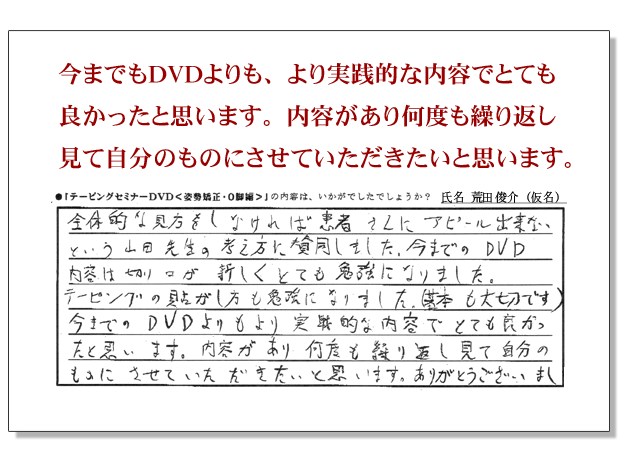 今までもDVDよりも、より実践的な内容でとても
良かったと思います。内容があり何度も繰り返し
見て自分のものにさせていただきたいと思います。
●「テーピングセミナーDVD<姿勢矯正・O脚編>」の内容は、いかがでしたでしょうか? 氏名 荒田俊介（仮名）
全体的な見方をしなければ患者さんにアピール出来ない
という山田先生の考え方に賛同しました。今までのDVD
内容は切り口が新しくとても勉強になりました。
テーピングの貼がし方も勉強になりました。(基本も大切です)
今までのDVDよりもより実戦的な内容でとても良かっ
たと思います。内容があり何度も繰り返し見て自分の
ものにさせていただきたいと思います。ありがとうございまし